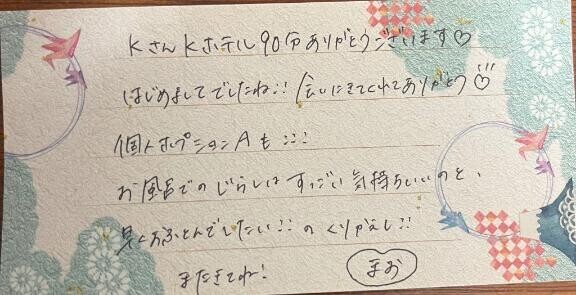 Kさん Kホテル 90分ありがとうございます♡
はじめましてでしたね!! 会いにきてくれてありがとう♡!!!
個人オプションAも:::!
お風呂でのじらしはすっごい気持ちいいのと、
早くおふとんでしたい!! のくりかえし!!
またきてね! まお